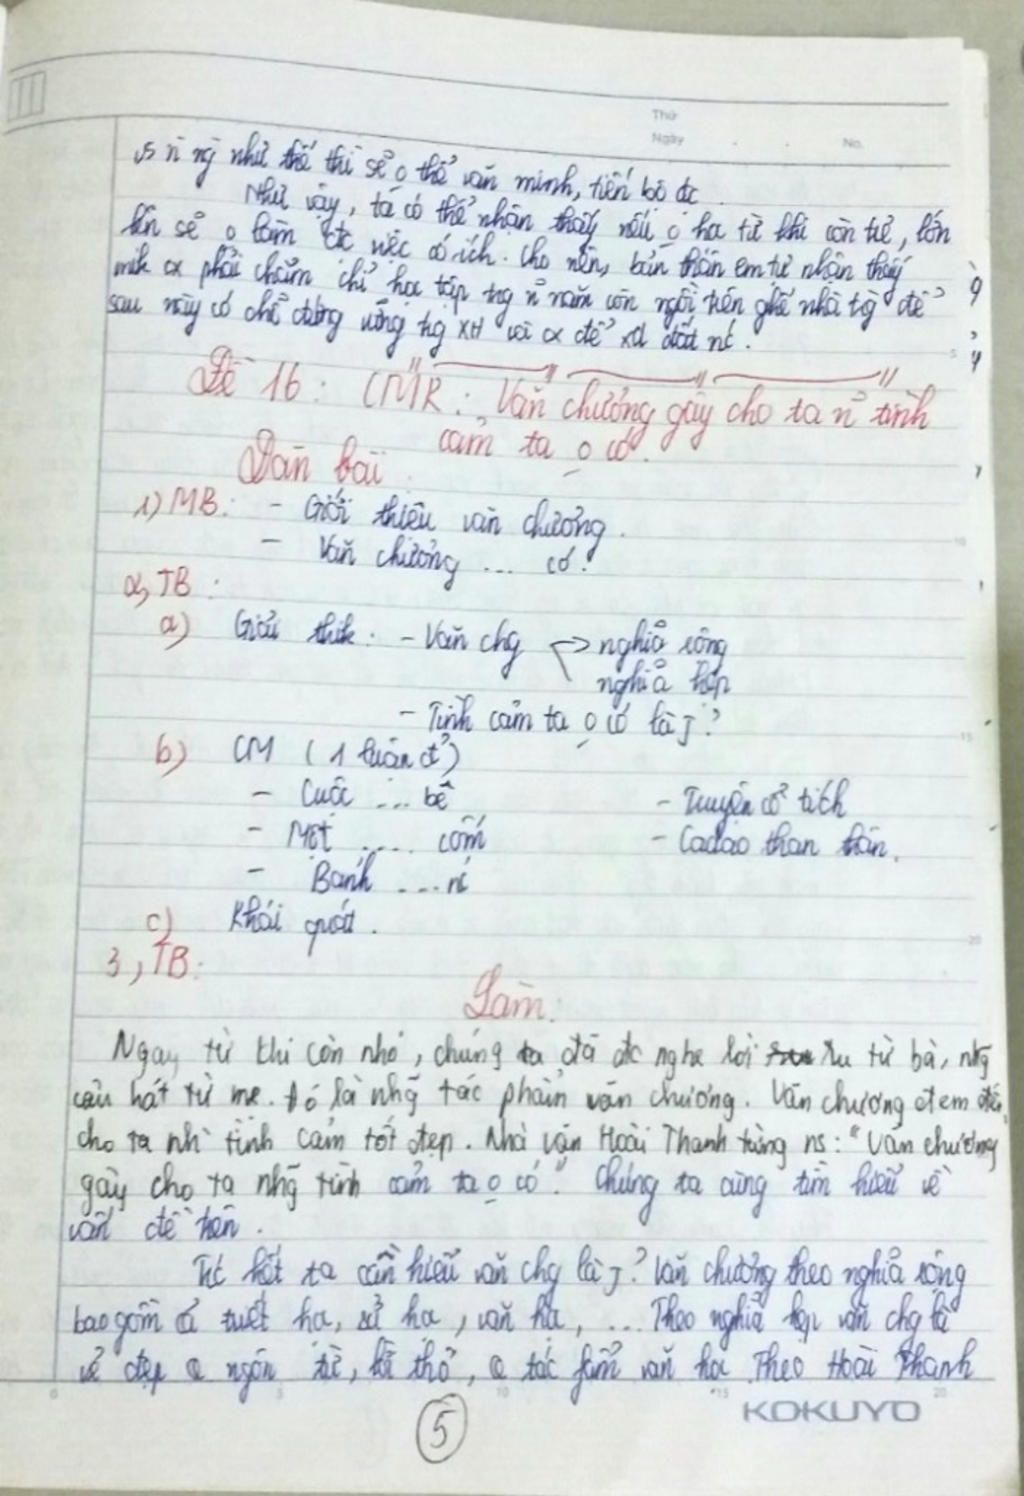 Thứ
Ngày No.
vs n ng như thế thì sẽ o thể văn minh, tiến bộ đc.
Như vậy, ta có thể nhận thấy nếu o họ từ khi còn trẻ, lớn
lên sẽ o làm đc việc có ích. Cho nên, bản thân em tự nhận thấy
mik phải chăm chỉ họ tập trg n năm còn ngồi trên ghế nhà trg để
sau này có chỗ đứng vững trg XH và để xd đất nc.
Đề 16: CMR: Văn chương gây cho ta n~ tình
cảm ta o có.
Dàn bài
1) MB: - Giới thiệu văn chương.
- Văn chương ... có.
2, TB:
a) Giải thik: - Văn chg nghĩa rộng
nghĩa hẹp
- Tình cảm ta o có là j?
b) CM (1 luận đ')
- Cuộc ... bể - Truyện cổ tích
- Một .... cốm - Ca dao than thân.
- Bánh ... nc
c) Khái quát.
3, TB:
Làm:
Ngay từ khi còn nhỏ, chúng ta đã đc nghe lời ru từ bà, nhg
câu hát từ mẹ. Đó là nhg~ tác phẩm văn chương. Văn chương đem đến
cho ta nh~ tình cảm tốt đẹp. Nhà văn Hoài Thanh từng ns: "Văn chương
gây cho ta nhg~ tình cảm ta o có". Chúng ta cùng tìm hiểu về
vấn đề trên.
Trc hết ta cần hiểu văn chg là j? Văn chương theo nghĩa rộng
bao gồm cả triết họ, sử họ, văn họ, ... Theo nghĩa hẹp văn chg là
vẻ đẹp ngôn từ, lời thơ, tác fẩm văn họ. Theo Hoài Thanh
5
KOKUYO